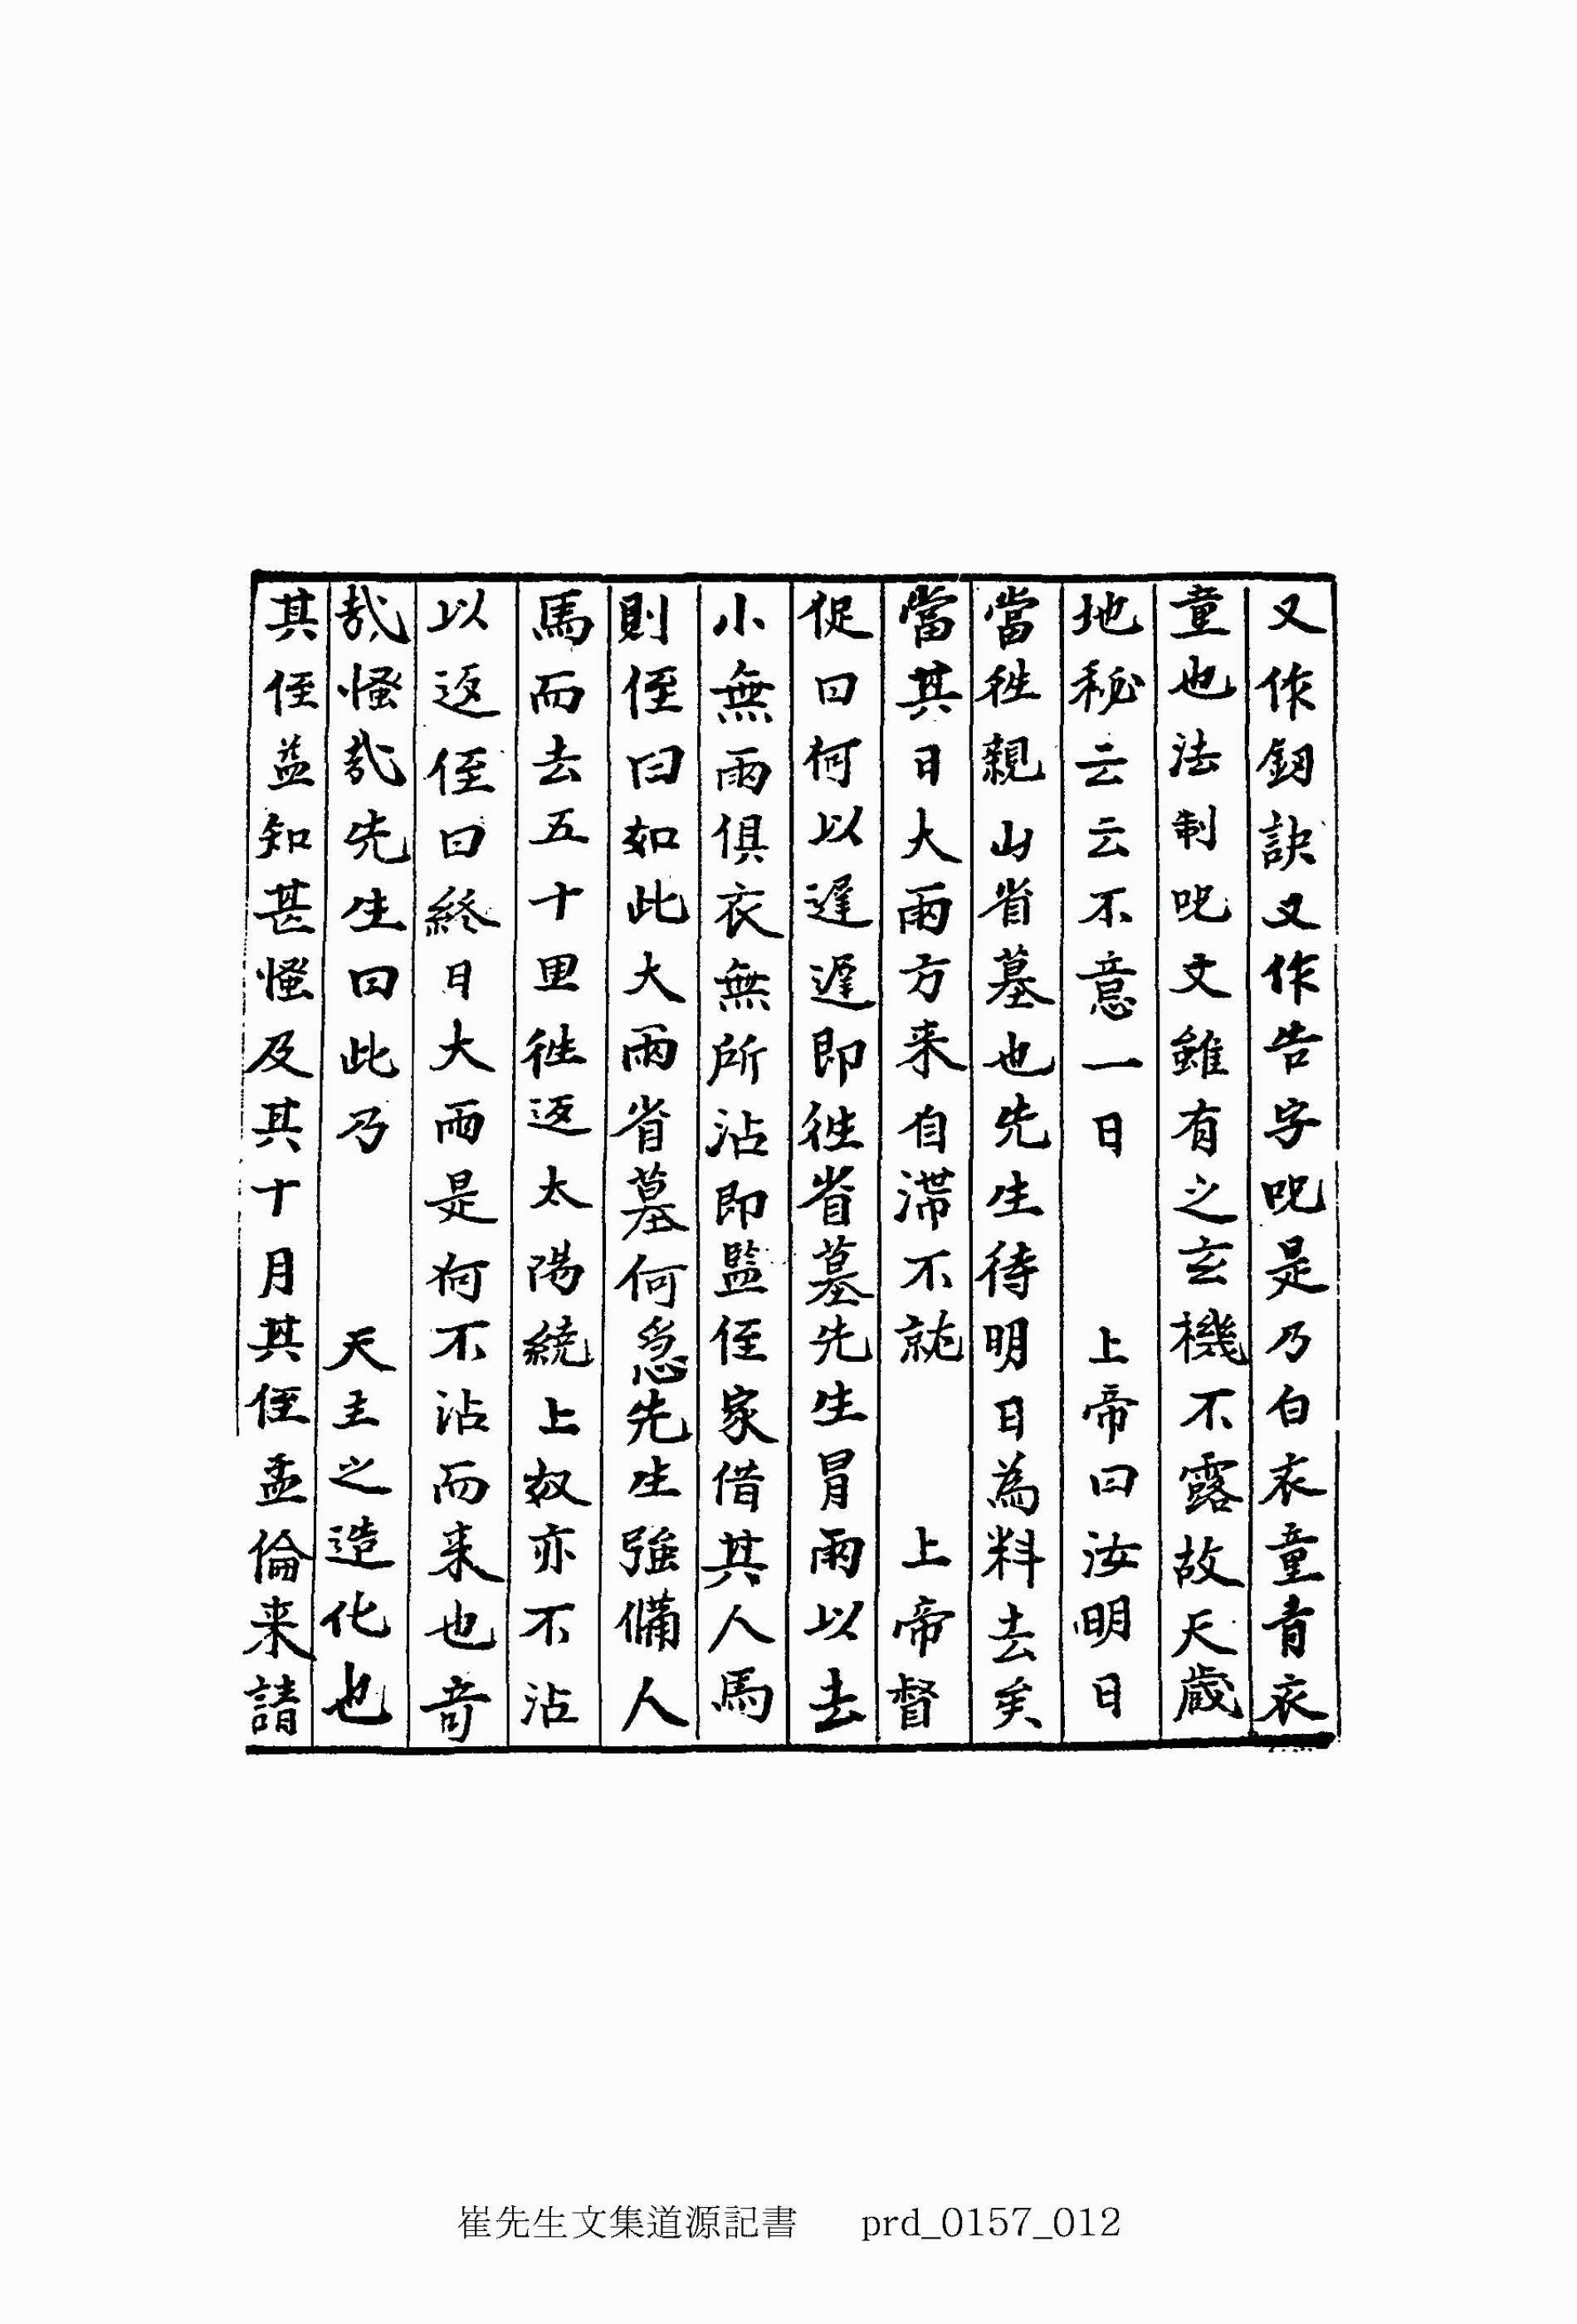 又作釰訣又作告字呪是乃白衣童青衣
童也法制呪文雖有之玄機不露故天藏
地秘云云不意一日　　上帝曰汝明日
當徃親山省墓也先生待明日為料去矣
當其日大雨方来自滯不就　　上帝督
促曰何以遲遲即徃省墓先生冒雨以去
小無雨俱衣無所沾即監侄家借其人馬
則侄曰如此大雨省墓何急先生強備人
馬而去五十里徃返太陽繞上奴亦不沾
以返侄曰終日大雨是何不沾而来也奇
哉怪哉先生曰此乃　　天主之造化也
其侄益知甚怪及其十月其侄孟倫来請
崔先生文集道源記書　prd_0157_012